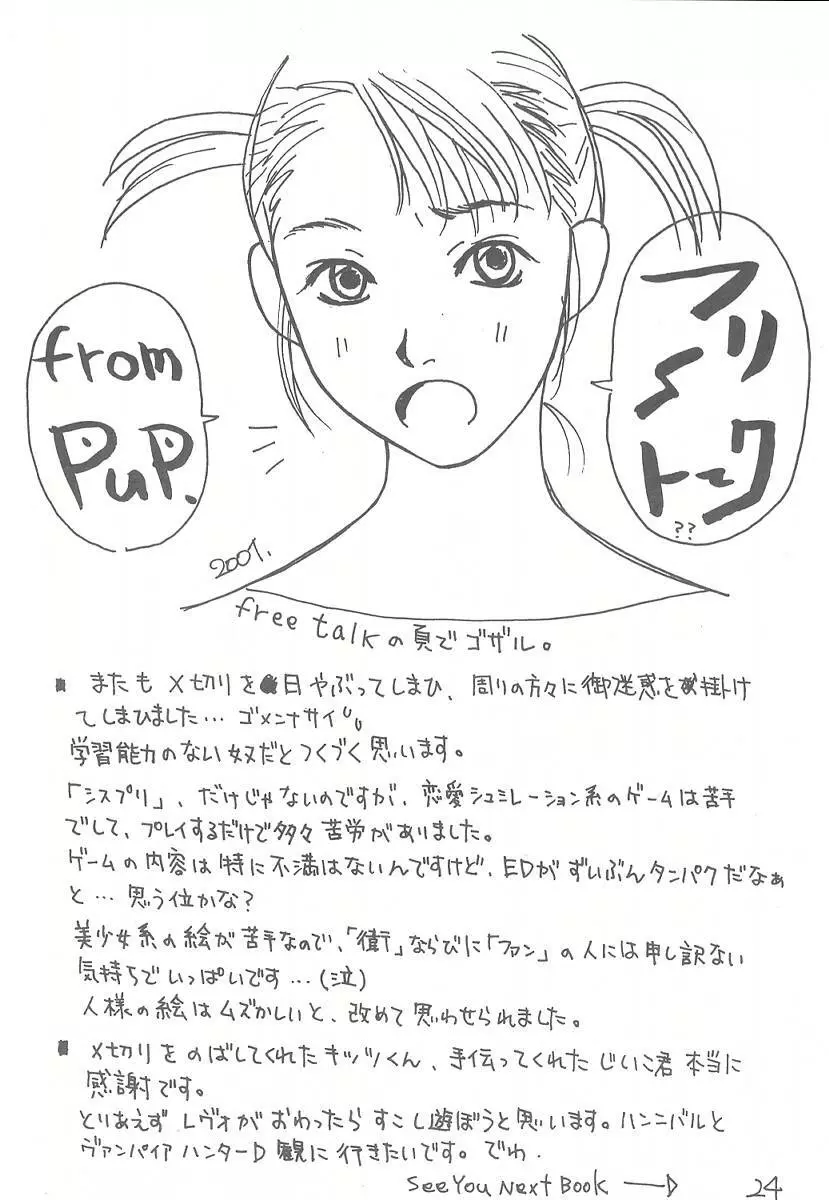 フリ〜トーク
??
from
PuP.
2001.
free talkの頁でゴザル。
またも〆切りを日やぶってしまひ、周りの方々に御迷惑を掛け
てしまひました…ゴメンナサイ
学習能力のない奴だとつくづく思います。
「シスプリ」、だけじゃないのですが、恋愛シュミレーション系のゲームは苦手
でして、プレイするだけで多々苦労がありました。
ゲームの内容は特に不満はないんですけど、EDがずいぶんタンパクだなぁ
と…思う位かな?
美少女系の絵が苦手なので、「衛」ならびに「ファン」の人には申し訳ない
気持ちでいっぱいです…(泣)
人様の絵はムズかしいと、改めて思わせられました。
〆切りをのばしてくれたキツツくん、手伝ってくれたじいこ君本当に
感謝です。
とりあえずレヴォがおわったらすこし遊ぼうと思います。ハンニバルと
ヴァンパイアハンターD観に行きたいです。でわ.
See You Next Book
24